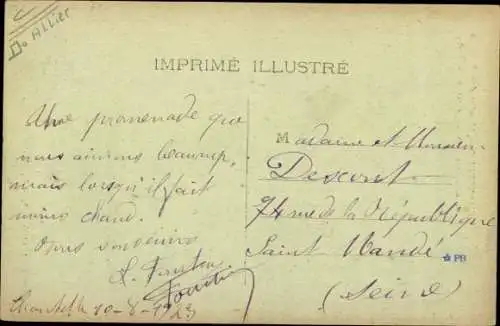 D. Allier
IMPRIMÉ ILLUSTRÉ
Une promenade que
nous aimons beaucoup,
mais lorsqu'il fait
moins chaud.
souvenirs
10-8-1923
Madame et Monsieur
Descout
74 rue de la République
Saint Mandé
PB
(Seine)